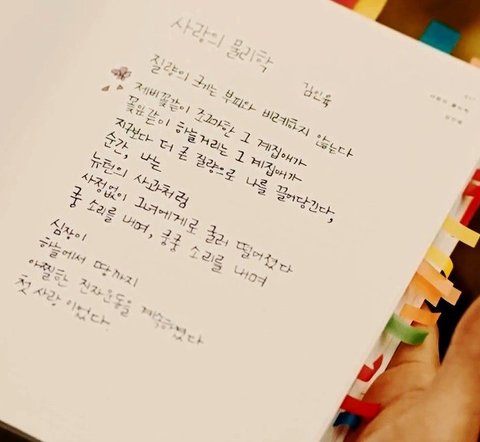 사랑의 물리학
김인육
질량의 크기는 부피와 비례하지 않는다
제비꽃같이 조그마한 그 계집애가
꽃잎같이 하늘거리는 그 계집애가
지구보다 더 큰 질량으로 나를 끌어당긴다,
순간, 나는
뉴턴의 사과처럼
사정없이 그녀에게로 굴러 떨어졌다
쿵 소리를 내며, 쿵쿵 소리를 내며
심장이
하늘에서 땅까지
아찔한 진자운동을 계속하였다
첫 사랑 이었다.